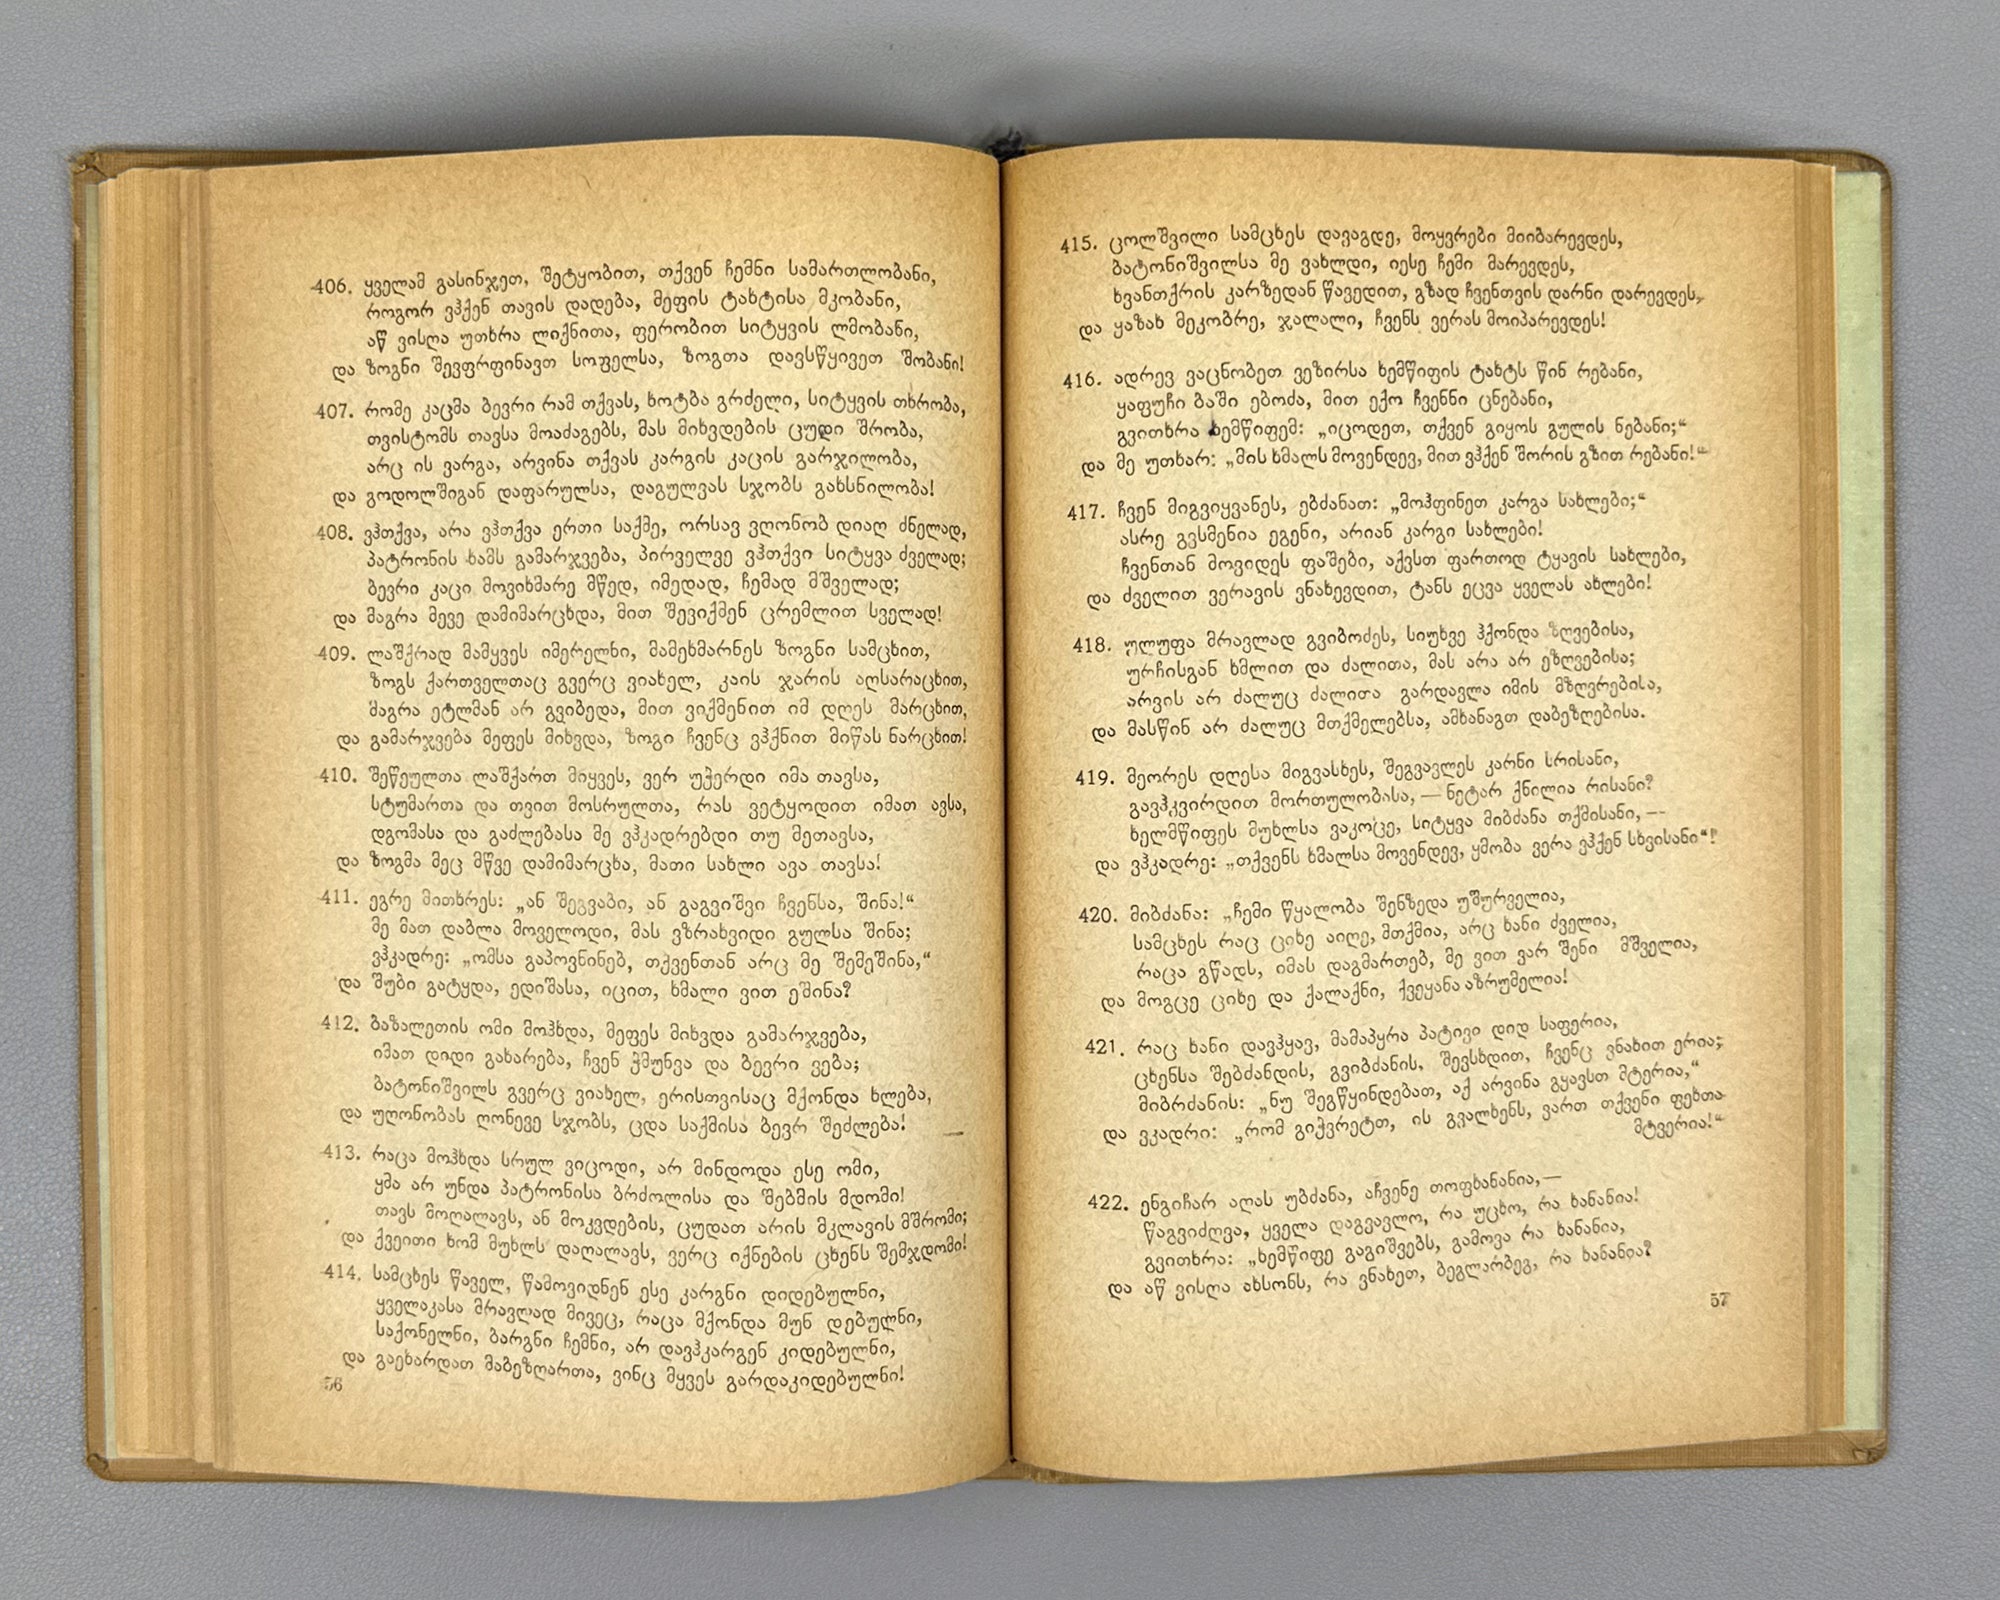 406. ყველამ გასინჯეთ, შეტყობით, თქვენ ჩემნი სამართლობანი,
როგორ ვჰქენ თავის დადება, მეფის ტახტისა მკობანი,
აწ ვისღა უთხრა ლიქნითა, ფერობით სიტყვის ლმობანი,
და ზოგნი შევფრფინავთ სოფელსა, ზოგთა დავსწყივეთ შობანი!
407. რომე კაცმა ბევრი რამ თქვას, ხოტბა გრძელი, სიტყვის თხრობა,
თვისტომს თავსა მოაძაგებს, მას მიხვდების ცუდი შრობა,
არც ის ვარგა, არვინა თქვას კარგის კაცის გარჯილობა,
და გოდოლშიგან დაფარულსა, დაგულვას სჯობს გახსნილობა!
408. ვჰთქვა, არა ვჰთქვა ერთი საქმე, ორსავ ვღონობ დიაღ ძნელად,
პატრონის ხამს გამარჯვება, პირველვე ვჰთქვი სიტყვა ძველად;
ბევრი კაცი მოვიხმარე მწედ, იმედად, ჩემად მშველად;
და მაგრა მევე დამიმარცხდა, მით შევიქმენ ცრემლით სველად!
409. ლაშქრად მამყვეს იმერელნი, მამეხმარნეს ზოგნი სამცხით,
ზოგს ქართველთაც გვერც ვიახელ, კაის ჯარის აღსარაცხით,
მაგრა ეტლმან არ გვიბედა, მით ვიქმენით იმ დღეს მარცხით,
და გამარჯვება მეფეს მიხვდა, ზოგი ჩვენც ვჰქნით მიწას ნარცხით!
410. შეწეულთა ლაშქართ მიყვეს, ვერ უჭერდი იმა თავსა,
სტუმართა და თვით მოსრულთა, რას ვეტყოდით იმათ ავსა,
დგომასა და გაძლებასა მე ვჰკადრებდი თუ მეთავსა,
და ზოგმა მეც მწვე დამიმარცხა, მათი სახლი ავა თავსა!
411. ეგრე მითხრეს: „ან შეგვაბი, ან გაგვიშვი ჩვენსა, შინა!“
მე მათ დაბლა მოველოდი, მას ვზრახვიდი გულსა შინა;
ვჰკადრე: „ომსა გაპოვნინებ, თქვენთან არც მე შემეშინა,“
და შუბი გატყდა, ედიშასა, იცით, ხმალი ვით ეშინა?
412. ბაზალეთის ომი მოჰხდა, მეფეს მიხვდა გამარჯვება,
იმათ დიდი გახარება, ჩვენ ჭმუნვა და ბევრი ვება;
ბატონიშვილს გვერც ვიახელ, ერისთვისაც მქონდა ხლება,
და უღონობას ღონევე სჯობს, ცდა საქმისა ბევრ შეძლება!
413. რაცა მოჰხდა სრულ ვიცოდი, არ მინდოდა ესე ომი,
ყმა არ უნდა პატრონისა ბრძოლისა და შებმის მდომი!
თავს მოღალავს, ან მოკვდების, ცუდათ არის მკლავის მშრომი;
და ქვეითი ხომ მუხლს დაღალავს, ვერც იქნების ცხენს შემჯდომი!
414. სამცხეს წაველ, წამოვიდნენ ესე კარგნი დიდებულნი,
ყველაკასა მრავლად მივეც, რაცა მქონდა მუნ დებულნი,
საქონელნი, ბარგნი ჩემნი, არ დავჰკარგენ კიდებულნი,
და გაეხარდათ მაბეზღართა, ვინც მყვეს გარდაკიდებულნი!
56
415. ცოლშვილი სამცხეს დავაგდე, მოყვრები მიიბარევდეს,
ბატონიშვილსა მე ვახლდი, იესე ჩემი მარევდეს,
ხვანთქრის კარზედან წავედით, გზად ჩვენთვის დარნი დარევდეს,
და ყაზახ მეკობრე, ჯალალი, ჩვენს ვერას მოიპარევდეს!
416. ადრევ ვაცნობეთ ვეზირსა ხემწიფის ტახტს წინ რებანი,
ყაფუჩი ბაში ებოძა, მით ექო ჩვენნი ცნებანი,
გვითხრა ხემწიფემ: „იცოდეთ, თქვენ გიყოს გულის ნებანი;“
და მე უთხარ: „მის ხმალს მოვენდევ, მით ვჰქენ შორის გზით რებანი!“
417. ჩვენ მიგვიყვანეს, ებძანათ: „მოჰფინეთ კარგა სახლები;“
ასრე გვსმენია ეგენი, არიან კარგი სახლები!
ჩვენთან მოვიდეს ფაშები, აქვსთ ფართოდ ტყავის სახლები,
და ძველით ვერავის ვნახევდით, ტანს ეცვა ყველას ახლები!
418. ულუფა მრავლად გვიბოძეს, სიუხვე ჰქონდა ზღვებისა,
ურჩისგან ხმლით და ძალითა, მას არა არ ეზღვებისა;
არვის არ ძალუც ძალითა გარდავლა იმის მზღვრებისა,
და მასწინ არ ძალუც მთქმელებსა, ამხანაგთ დაბეზღებისა.
419. მეორეს დღესა მიგვასხეს, შეგვავლეს კარნი სრისანი,
გავჰკვირდით მორთულობასა, — ნეტარ ქნილია რისანი?
ხელმწიფეს მუხლსა ვაკოცე, სიტყვა მიბძანა თქმისანი, —
და ვჰკადრე: „თქვენს ხმალსა მოვენდევ, ყმობა ვერა ვჰქენ სხვისანი“!
420. მიბძანა: „ჩემი წყალობა შენზედა უშურველია,
სამცხეს რაც ციხე აიღე, მთქმია, არც ხანი ძველია,
რაცა გწადს, იმას დაგმართებ, მე ვით ვარ შენი მშველია,
და მოგცე ციხე და ქალაქნი, ქვეყანა აზრუმელია!
421. რაც ხანი დავჰყავ, მამაპყრა პატივი დიდ საფერია,
ცხენსა შებძანდის, გვიბძანის, შევსხდით, ჩვენც ვნახით ერია;
მიბრძანის: „ნუ შეგწყინდებათ, აქ არვინა გყავსთ მტერია,“
და ვკადრი: „რომ გიჭვრეტთ, ის გვალხენს, ვართ თქვენი ფეხთა
მტვერია!“
422. ენგიჩარ აღას უბძანა, აჩვენე თოფხანანია, —
წაგვიძღვა, ყველა დაგვავლო, რა უცხო, რა ხანანია!
გვითხრა: „ხემწიფე გაგიშვებს, გამოვა რა ხანანია,
და აწ ვისღა ახსონს, რა ვნახეთ, ბეგლარბეგ, რა ხანანია?
57